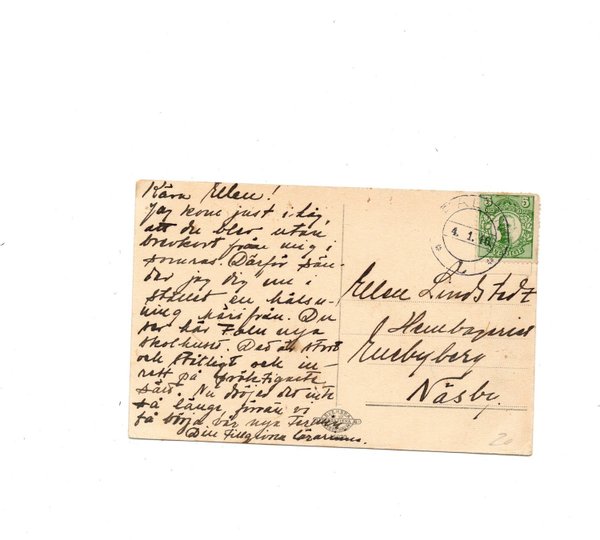 Kära Ellen!
Jag kom just i dag,
att du blev utan
brevkort från mig i
somras. Därför sän-
der jag dig nu i
stället en häls-
ning härifrån. Du
ser här Falu nya
skolhus. Det är stort
och ståtligt och in-
rett på präktigaste
sätt. Nu dröjer det inte
så länge, förrän vi
få börja vår nya Termin
Din Tillgivna Lärarinna.
4. 1. 16
5 5
Ellen Lindstedt
Hembageriet
Enebyberg
Näsby.
20